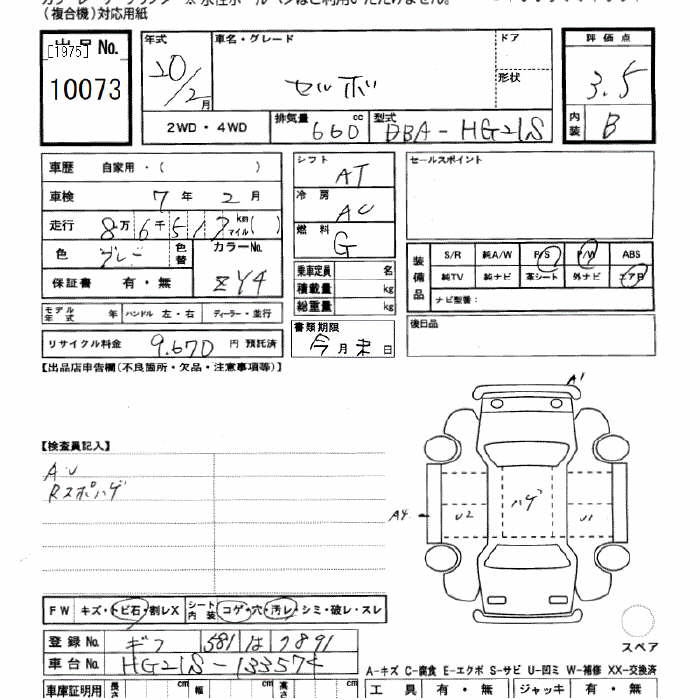 （複合機）対応用紙
出品No.
[1975]
10073
年式
20/2月
車名・グレード
セルボ
ドア
形状
評価点
3.5
内装
B
2WD・4WD
排気量
660 cc
型式
DBA-HG21S
車歴 自家用・（ ）
車検 7年 2月
走行 8万6千517 km マイル( )
色 グレー
色替
カラーNo.
ZY4
保証書 有・無
モデル年式 年 ハンドル 左・右 ディーラー・並行
リサイクル料金 9,670 円 預託済
シフト
AT
冷房
AC
燃料
G
乗車定員 名
積載量 kg
総重量 kg
書類期限
今月末日
セールスポイント
装備品
S/R 純A/W P/S P/W ABS
純TV 純ナビ 革シート 外ナビ エアB
ナビ型番：
後日品
【出品店申告欄（不良箇所・欠品・注意事項等）】
【検査員記入】
A・U
Rスポハゲ
A1
A4
U2
ハゲ
U1
FW キズ・トビ石・割レX シート内装 コゲ・穴・汚レ・シミ・破レ・スレ
スペア
登録No. ギフ 581 は 7891
車台No. HG21S-133574
A-キズ C-腐食 E-エクボ S-サビ U-凹ミ W-補修 XX-交換済
車庫証明用 長さ cm 幅 cm 高さ cm
工具 有・無 ジャッキ 有・無